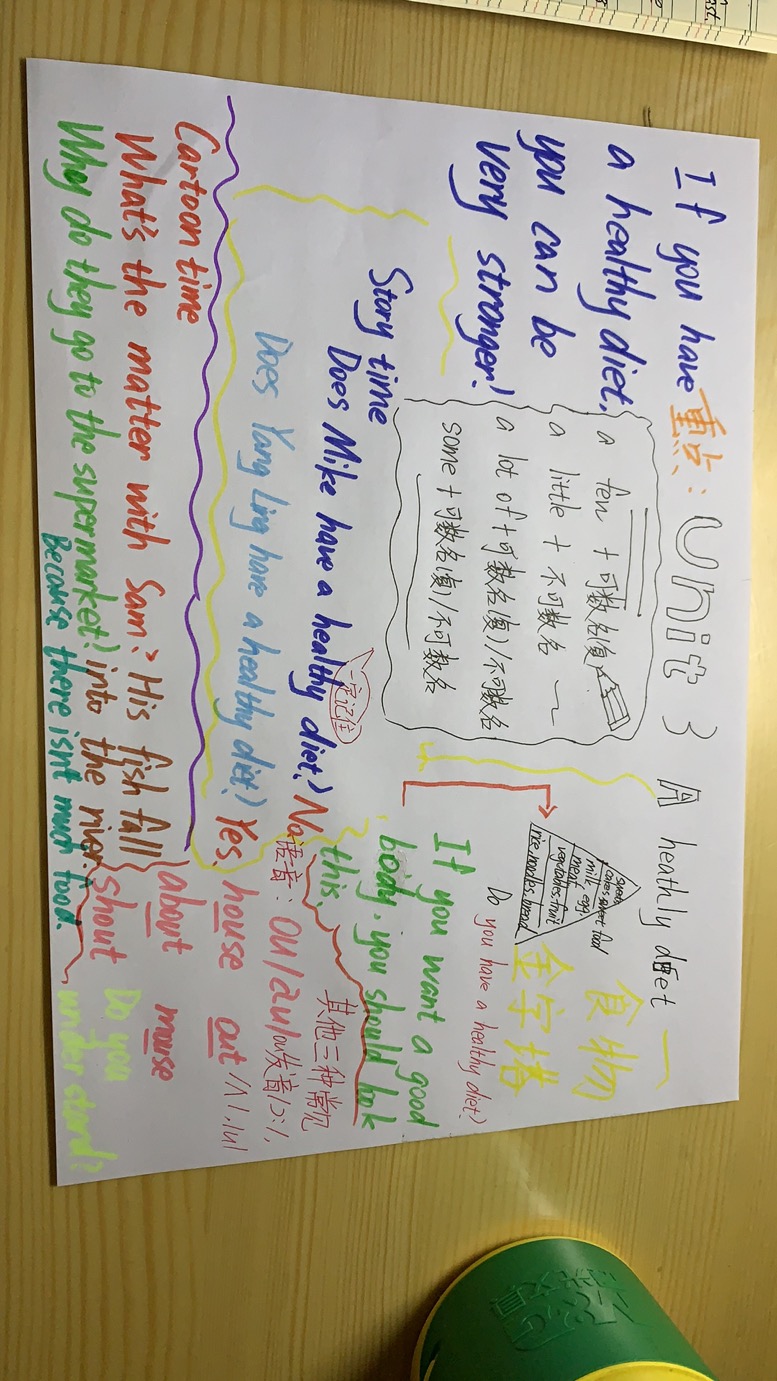 Unit 3 A heathly diet
If you have
a healthy diet,
you can be
very stronger!
重点:
a few + 可数名(复)
a little + 不可数名
a lot of + 可数名(复)/不可数名
some + 可数名(复)/不可数名
一定记住
sweets
cakes, sweet food
milk, egg
meat
vegetables, fruit
rice, noodles, bread
食物
金字塔
Do you have a healthy diet?
If you want a good
body, you should look
this.
Story time
Does Mike have a healthy diet? No.
Does Yang Ling have a healthy diet? Yes.
语音: ou/au/
其他三种常见
ou发音/ɔ:/,
/ʌ/, /u/
house out
about mouse
shout
Do you
under stand?
Cartoon time
What's the matter with Sam? His fish fall
into the river.
Why do they go to the supermarket?
Because there isn't much food.
M&G